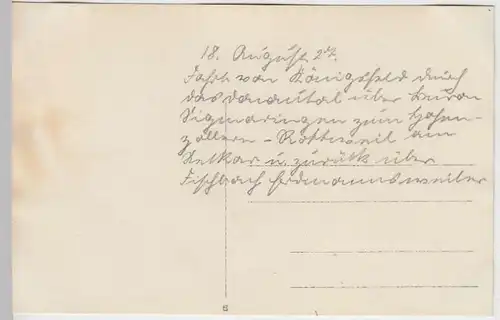 18. August 27.
Fahrt von Königsfeld durch
das Donautal über Beuron
Sigmaringen zum Hohen-
zollern - Rottweil am
Neckar u. zurück über
Fischbach Erdmannsweiler